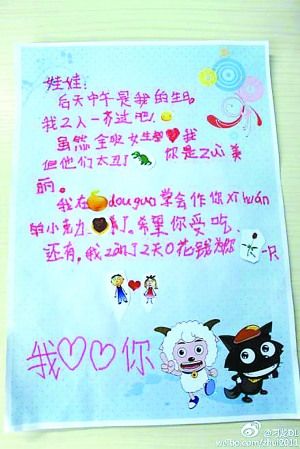 娃娃:
后天中午是我的生日,
我2人一齐过吧!
虽然全班女生都❤我
但他们太丑了 你是Zui美
丽。
我在douguo学会作你xi huan
的小 力 了。希望你爱吃
还有,我 了2天0花钱为你 一只
我♡♡你
@刁必DL
weibo.com/zhui2011